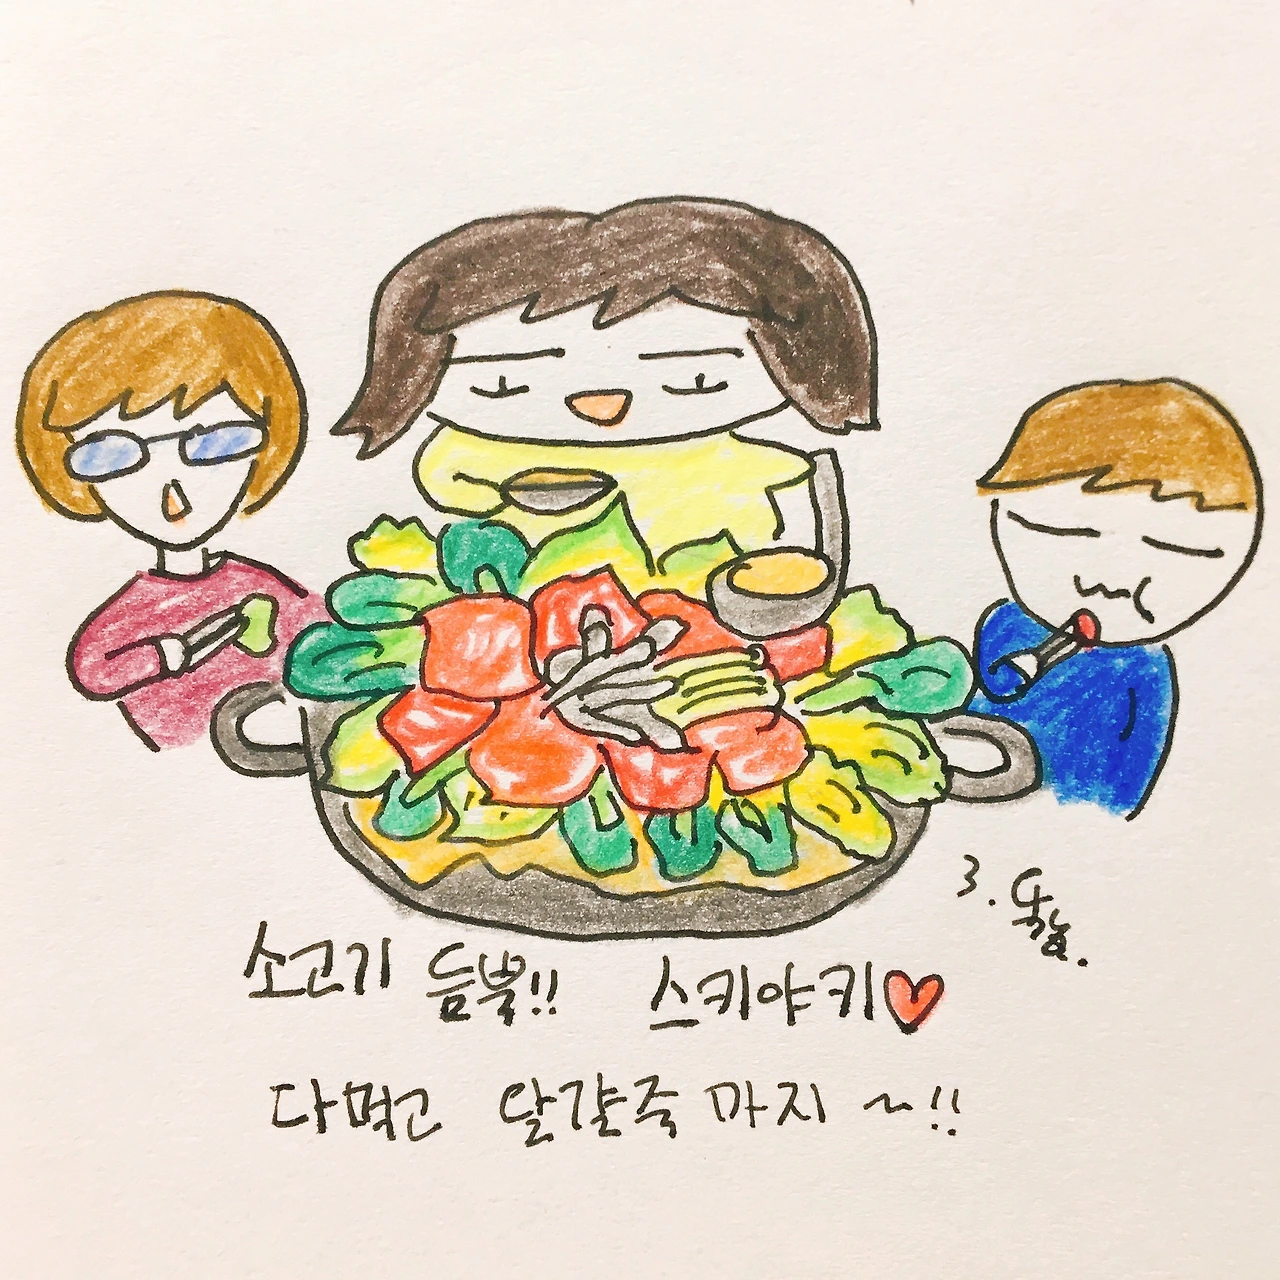 소고기 듬뿍!! 스키야키♥
다먹고 달걀죽 까지 ~!!